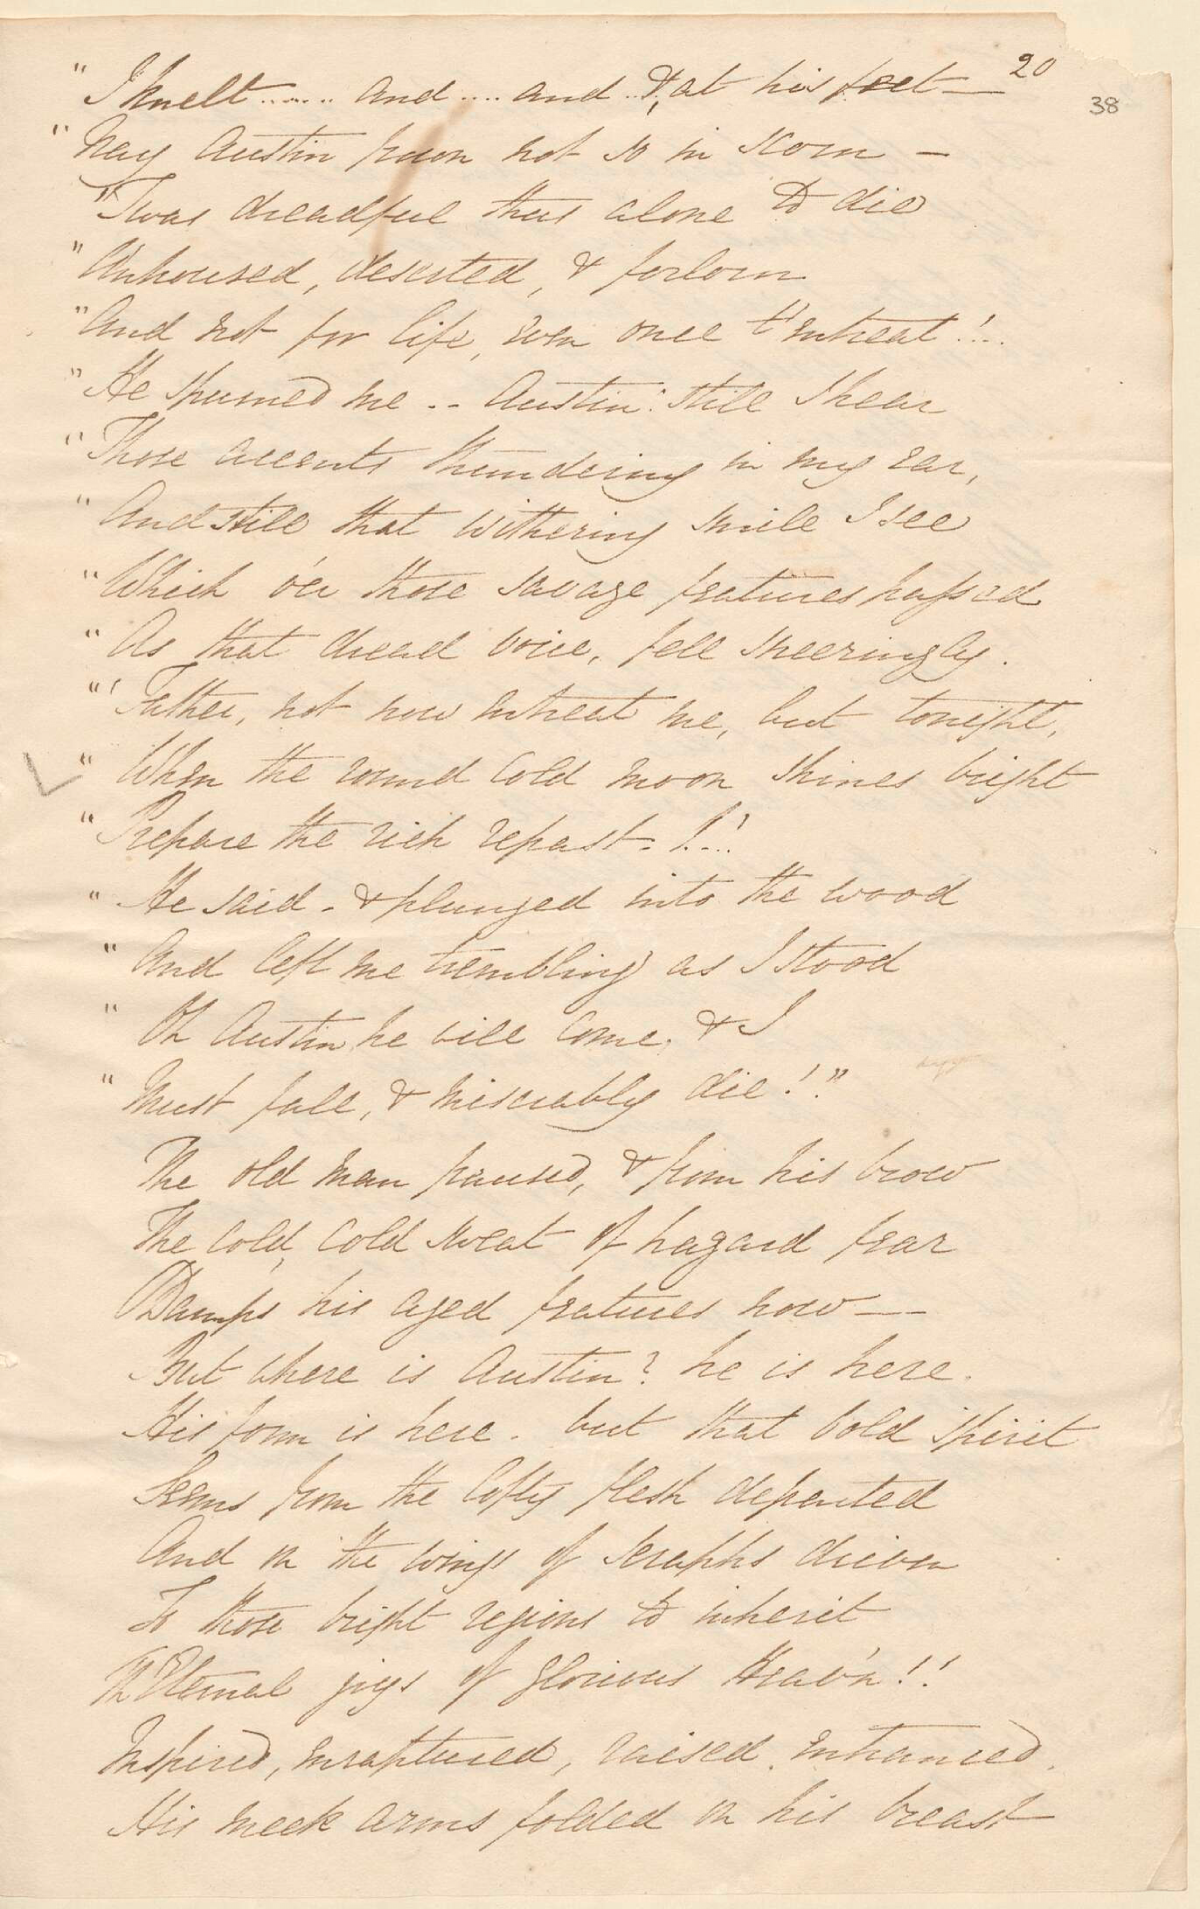 20
38
"I knelt...... and.... and... & at his feet—
"Nay Austin frown not so in scorn —
"Twas dreadful thus alone to die
"Unhoused, deserted, & forlorn
"And not for life, even once t'entreat!!..
"He spurned me .. Austin! still I hear
"Those accents thundering in my ear,
"And still that withering smile I see
"Which o'er those savage features passed
"As that dread voice, fell sneeringly.
"'Father, not now entreat me, but tonight,
"When the round cold moon shines bright
"Prepare the rich repast. !.!.'
"He said. & plunged into the wood
"And left me trembling as I stood
"Oh Austin he will come. & I
"Must fall, & miserably die!"
The old man paused, & from his brow
The cold, cold sweat of hagard fear
Damps his aged features now——
But where is Austin? he is here.
His form is here. but that bold spirit
Seems from the lofty flesh departed
And on the wings of seraphs driven
To those bright regions to inherit
Th'Eternal joys of glorious Heav'n!!
Inspired, enraptured, raised, entranced.
His meek arms folded on his breast